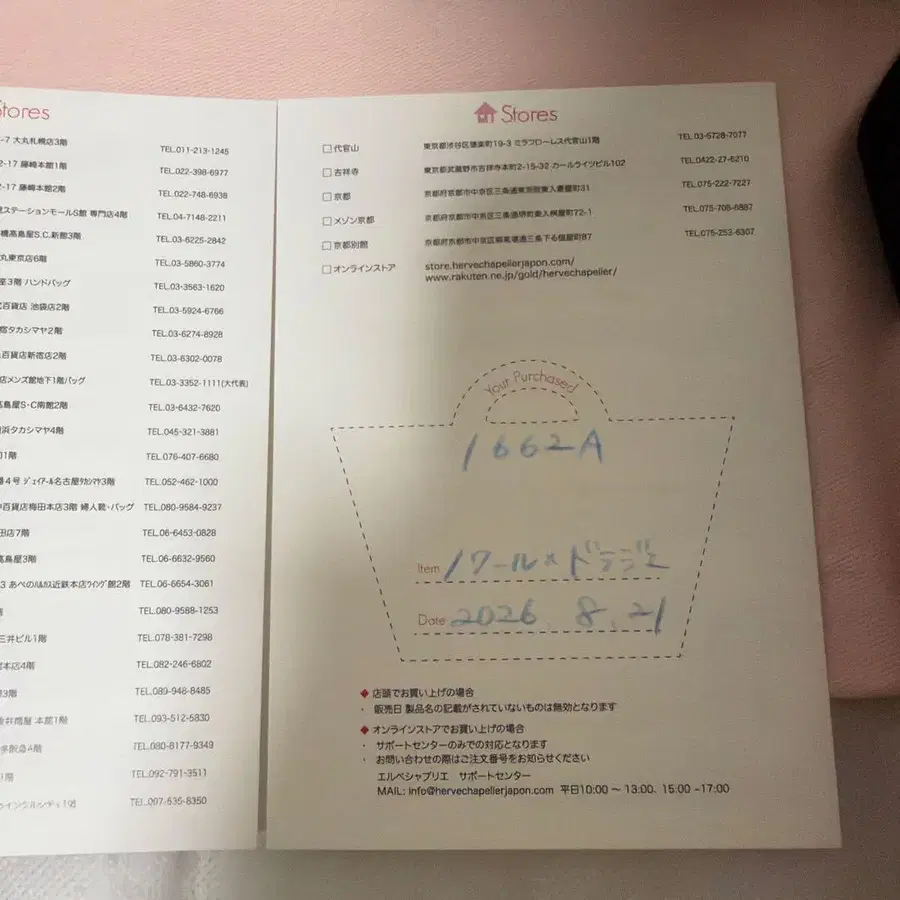 Stores
-7 大丸札幌店3階 TEL.011-213-1245
2-17 藤崎本館1階 TEL.022-398-6977
2-17 藤崎本館2階 TEL.022-748-6938
ステーションモールS館 専門店4階 TEL.04-7148-2211
橋髙島屋S.C.新館3階 TEL.03-6225-2842
丸東京店6階 TEL.03-5860-3774
座3階 ハンドバッグ TEL.03-3563-1620
百貨店 池袋店2階 TEL.03-5924-6766
宿タカシマヤ2階 TEL.03-6274-8928
百貨店新宿店2階 TEL.03-6302-0078
店メンズ館地下1階バッグ TEL.03-3352-1111(大代表)
髙島屋S・C南館2階 TEL.03-6432-7620
浜タカシマヤ4階 TEL.045-321-3881
1階 TEL.076-407-6680
4号 ジェイアール名古屋タカシマヤ3階 TEL.052-462-1000
百貨店梅田本店3階 婦人靴・バッグ TEL.080-9584-9237
田店7階 TEL.06-6453-0828
髙島屋3階 TEL.06-6632-9560
3 あべのハルカス近鉄本店ウイング館2階 TEL.06-6654-3061
階 TEL.080-9588-1253
三井ビル1階 TEL.078-381-7298
本店4階 TEL.082-246-6802
3階 TEL.089-948-8485
井筒屋 本館1階 TEL.093-512-5830
多阪急4階 TEL.080-8177-9349
1階 TEL.092-791-3511
TEL.097-535-8350
Stores
代官山 東京都渋谷区猿楽町19-3 ミラフローレス代官山1階 TEL.03-5728-7077
吉祥寺 東京都武蔵野市吉祥寺本町2-15-32 カールライツビル102 TEL.0422-27-6210
京都 京都府京都市中京区三条通東洞院東入菱屋町31 TEL.075-222-7227
メゾン京都 京都府京都市中京区三条通堺町東入桝屋町72-1 TEL.075-708-6887
京都別館 京都府京都市中京区柳馬場通三条下る槌屋町87 TEL.075-253-6307
オンラインストア store.hervechapelierjapon.com/
www.rakuten.ne.jp/gold/hervechapelier/
Your Purchased
1662A
Item ノワール×ドラジェ
Date 2026. 8. 21
◆ 店頭でお買い上げの場合
・ 販売日 製品名の記載がされていないものは無効となります
◆ オンラインストアでお買い上げの場合
・ サポートセンターのみでの対応となります
・ お問い合わせの際はご注文番号をお知らせください
エルベシャプリエ サポートセンター
MAIL: info@hervechapelierjapon.com 平日10:00 ～ 13:00、15:00 -17:00